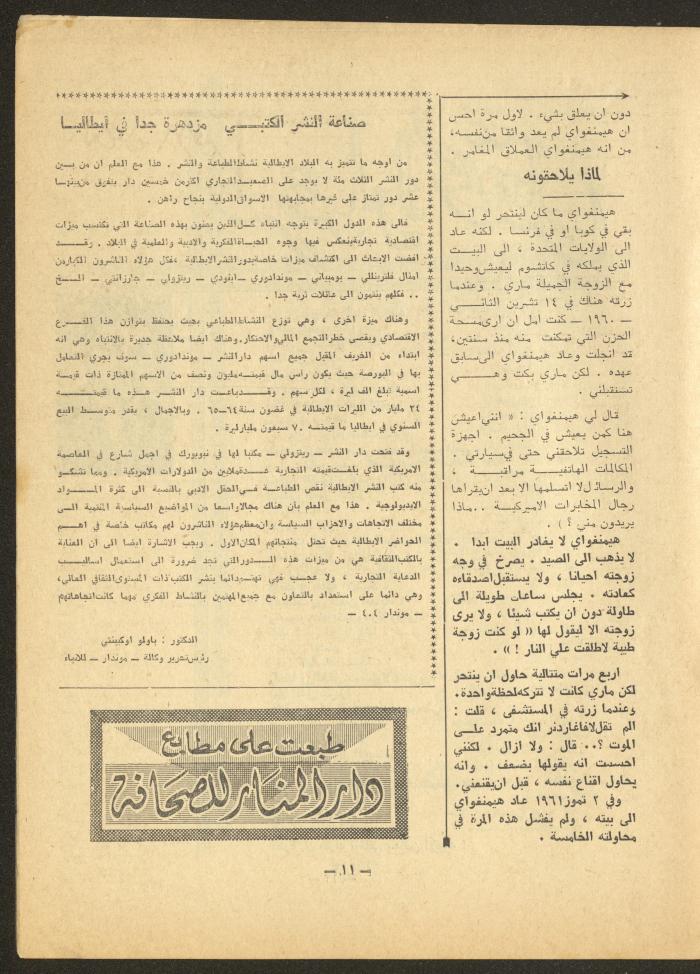 دون ان يعلق بشيء . لاول مرة احس
ان هيمنغواي لم يعد واثقا من نفسه،
من انه هيمنغواي العملاق المغامر .
لماذا يلاحقونه
هيمنغواي ما كان لينتحر لو انه
بقي في كوبا او في فرنسا . لكنه عاد
الى الولايات المتحدة ، الى البيت
الذي يملكه في كاتشوم ليعيش وحيدا
مع الزوجة الجميلة ماري . وعندما
زرته هناك في ١٤ تشرين الثاني
— ١٩٦٠ — كنت امل ان ارى مسحة
الحزن التي تمكنت منه منذ سنتين،
قد انجلت وعاد هيمنغواي الى سابق
عهده . لكن ماري بكت وهي
تستقبلني .
قال لي هيمنغواي : « انني اعيش
هنا كمن يعيش في الجحيم . اجهزة
التسجيل تلاحقني حتى في سيارتي .
المكالمات الهاتفية مراقبة ،
والرسائل لا اتسلمها الا بعد ان يقراها
رجال المخابرات الاميركية .. ماذا
يريدون مني ؟ ) .
هيمنغواي لا يغادر البيت ابدا .
لا يذهب الى الصيد . يصرخ في وجه
زوجته احيانا ، ولا يستقبل اصدقاءه
كعادته . يجلس ساعات طويلة الى
طاولة دون ان يكتب شيئا ، ولا يرى
زوجته الا ليقول لها « لو كنت زوجة
طيبة لاطلقت علي النار ! » .
اربع مرات متتالية حاول ان ينتحر
لكن ماري كانت لا تتركه لحظة واحدة.
وعندما زرته في المستشفى ، قلت :
الم تقل لافاغاردنر انك متمرد على
الموت ؟.. قال : ولا ازال . لكنني
احسست انه يقولها بضعف . وانه
يحاول اقناع نفسه ، قبل ان يقنعني.
وفي ٢ تموز ١٩٦١ عاد هيمنغواي
الى بيته ، ولم يفشل هذه المرة في
محاولته الخامسة .
صناعة النشر الكتبي مزدهرة جدا في ايطاليا
من اوجه ما تتميز به البلاد الايطالية نشاط الطباعة والنشر . هذا مع العلم ان من بين
دور النشر الثلاث مئة لا يوجد على الصعيد التجاري اكثر من خمسين دار يتفرق من بينها
عشر دور تمتاز على غيرها بمجابهتها الاسواق الدولية بنجاح راهن .
فالى هذه الدول الكبيرة يتوجه انتباه كل الذين يعنون بهذه الصناعة التي تكتسب ميزات
اقتصادية تجارية ينعكس فيها وجوه الحياة الفكرية والادبية والعلمية في البلاد . وقد
افضت الابحاث الى اكتشاف ميزات خاصة بدور النشر الايطالية ، فكل هؤلاء الناشرون الكبار من
امثال فلترينللي — بومبياني — موندادوري — اينودي — ريتزولي — جارزانتي — الخ
.. فكلهم ينتمون الى عائلات ثرية جدا .
وهناك ميزة اخرى ، وهي توزع النشاط الطباعي بحيث يحتفظ بتوازن هذا الفرع
الاقتصادي ويقصى خطر التجمع المالي والاحتكار. وهناك ايضا ملاحظة جديرة بالانتباه وهي انه
ابتداء من الخريف المقبل جميع اسهم دار النشر — موندادوري — سوف يجري التعامل
بها في البورصة حيث يكون راس مال قيمته مليون ونصف من الاسهم الممتازة ذات قيمة
اسمية تبلغ الف ليرة ، لكل سهم . وقد باعت دار النشر هذه ما قيمته
٢٤ مليار من الليرات الايطالية في غضون سنة ٦٤—٦٥ . وبالاجمال ، يقدر متوسط البيع
السنوي في ايطاليا ما قيمته ٧٠ سبعون مليار ليرة .
وقد فتحت دار النشر — ريتزولي — مكتبا لها في نيويورك في اجمل شارع في العاصمة
الامريكية الذي بلغت قيمته التجارية عدة ملايين من الدولارات الامريكية . ومما تشكو
منه كتب النشر الايطالية نقص الطباعة في الحقل الادبي بالنسبة الى كثرة المواد
الايديولوجية . هذا مع العلم بأن هناك مجالا واسعا من المواضيع السياسية المنتمية الى
مختلف الاتجاهات والاحزاب السياسة وان معظم هؤلاء الناشرون لهم مكاتب خاصة في اهم
الحواضر الايطالية حيث تحتل منتجاتهم المكان الاول . ويجب الاشارة ايضا الى ان العناية
بالكتب الثقافية هي من ميزات هذه الدور التي تجد ضرورة الى استعمال اساليب
الدعاية التجارية ، ولا عجب فهي تهتم دائما بنشر الكتب ذات المستوى الثقافي العالي،
وهي دائما على استعداد بالتعاون مع جميع المهتمين بالنشاط الفكري مهما كانت اتجاهاتهم
— موندار ٤٠٤ —
الدكتور : باولو اوكيبنتي
رئيس تحرير وكالة — موندار — للانباء
طبعت على مطابع
دار المنار للصحافة
— ١١ —